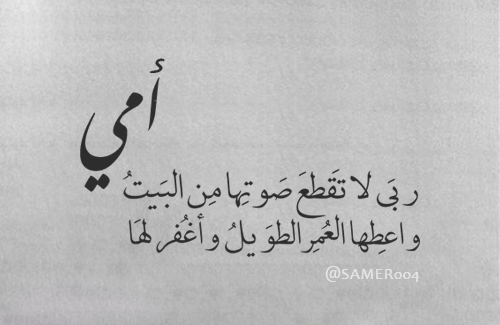 أمي
ربَي لا تقَطعَ صَوتِها مِن البَيتُ
و اعطِها العُمِر الطوَيلُ و أغُفر لهَا
@SAMER004